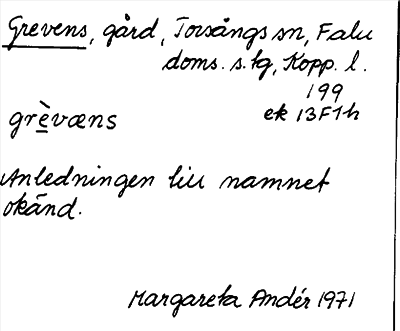 Grevens, gård, Torsångs sn, Falu
doms. s. tg, Kopp. l.
199
grèvæns
ek 13F1h
Anledningen till namnet
okänd.
Margareta Andér 1971